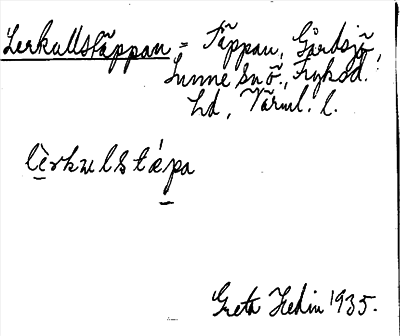 Lerkullstäppan = Täppan, Gårdsjö,
Sunne snö., Fryksd.
hd, Värml. l.
lèrkulstépa
Greta Hedin 1935.